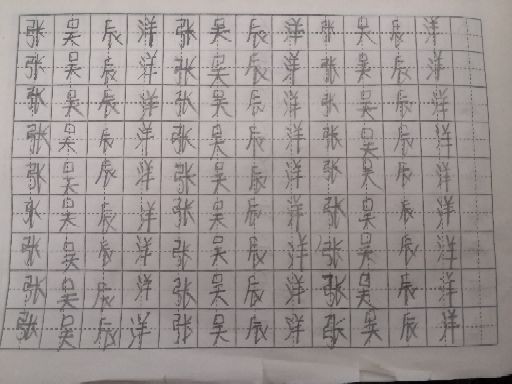 张吴辰洋张吴辰洋张吴辰洋
张吴辰洋张吴辰洋张吴辰洋
张吴辰洋张吴辰洋张吴辰洋
张吴辰洋张吴辰洋张吴辰洋
张吴辰洋张吴辰洋张吴辰洋
张吴辰洋张吴辰洋张吴辰洋
张吴辰洋张吴辰洋张吴辰洋
张吴辰洋张吴辰洋张吴辰洋
张吴辰洋张吴辰洋张吴辰洋